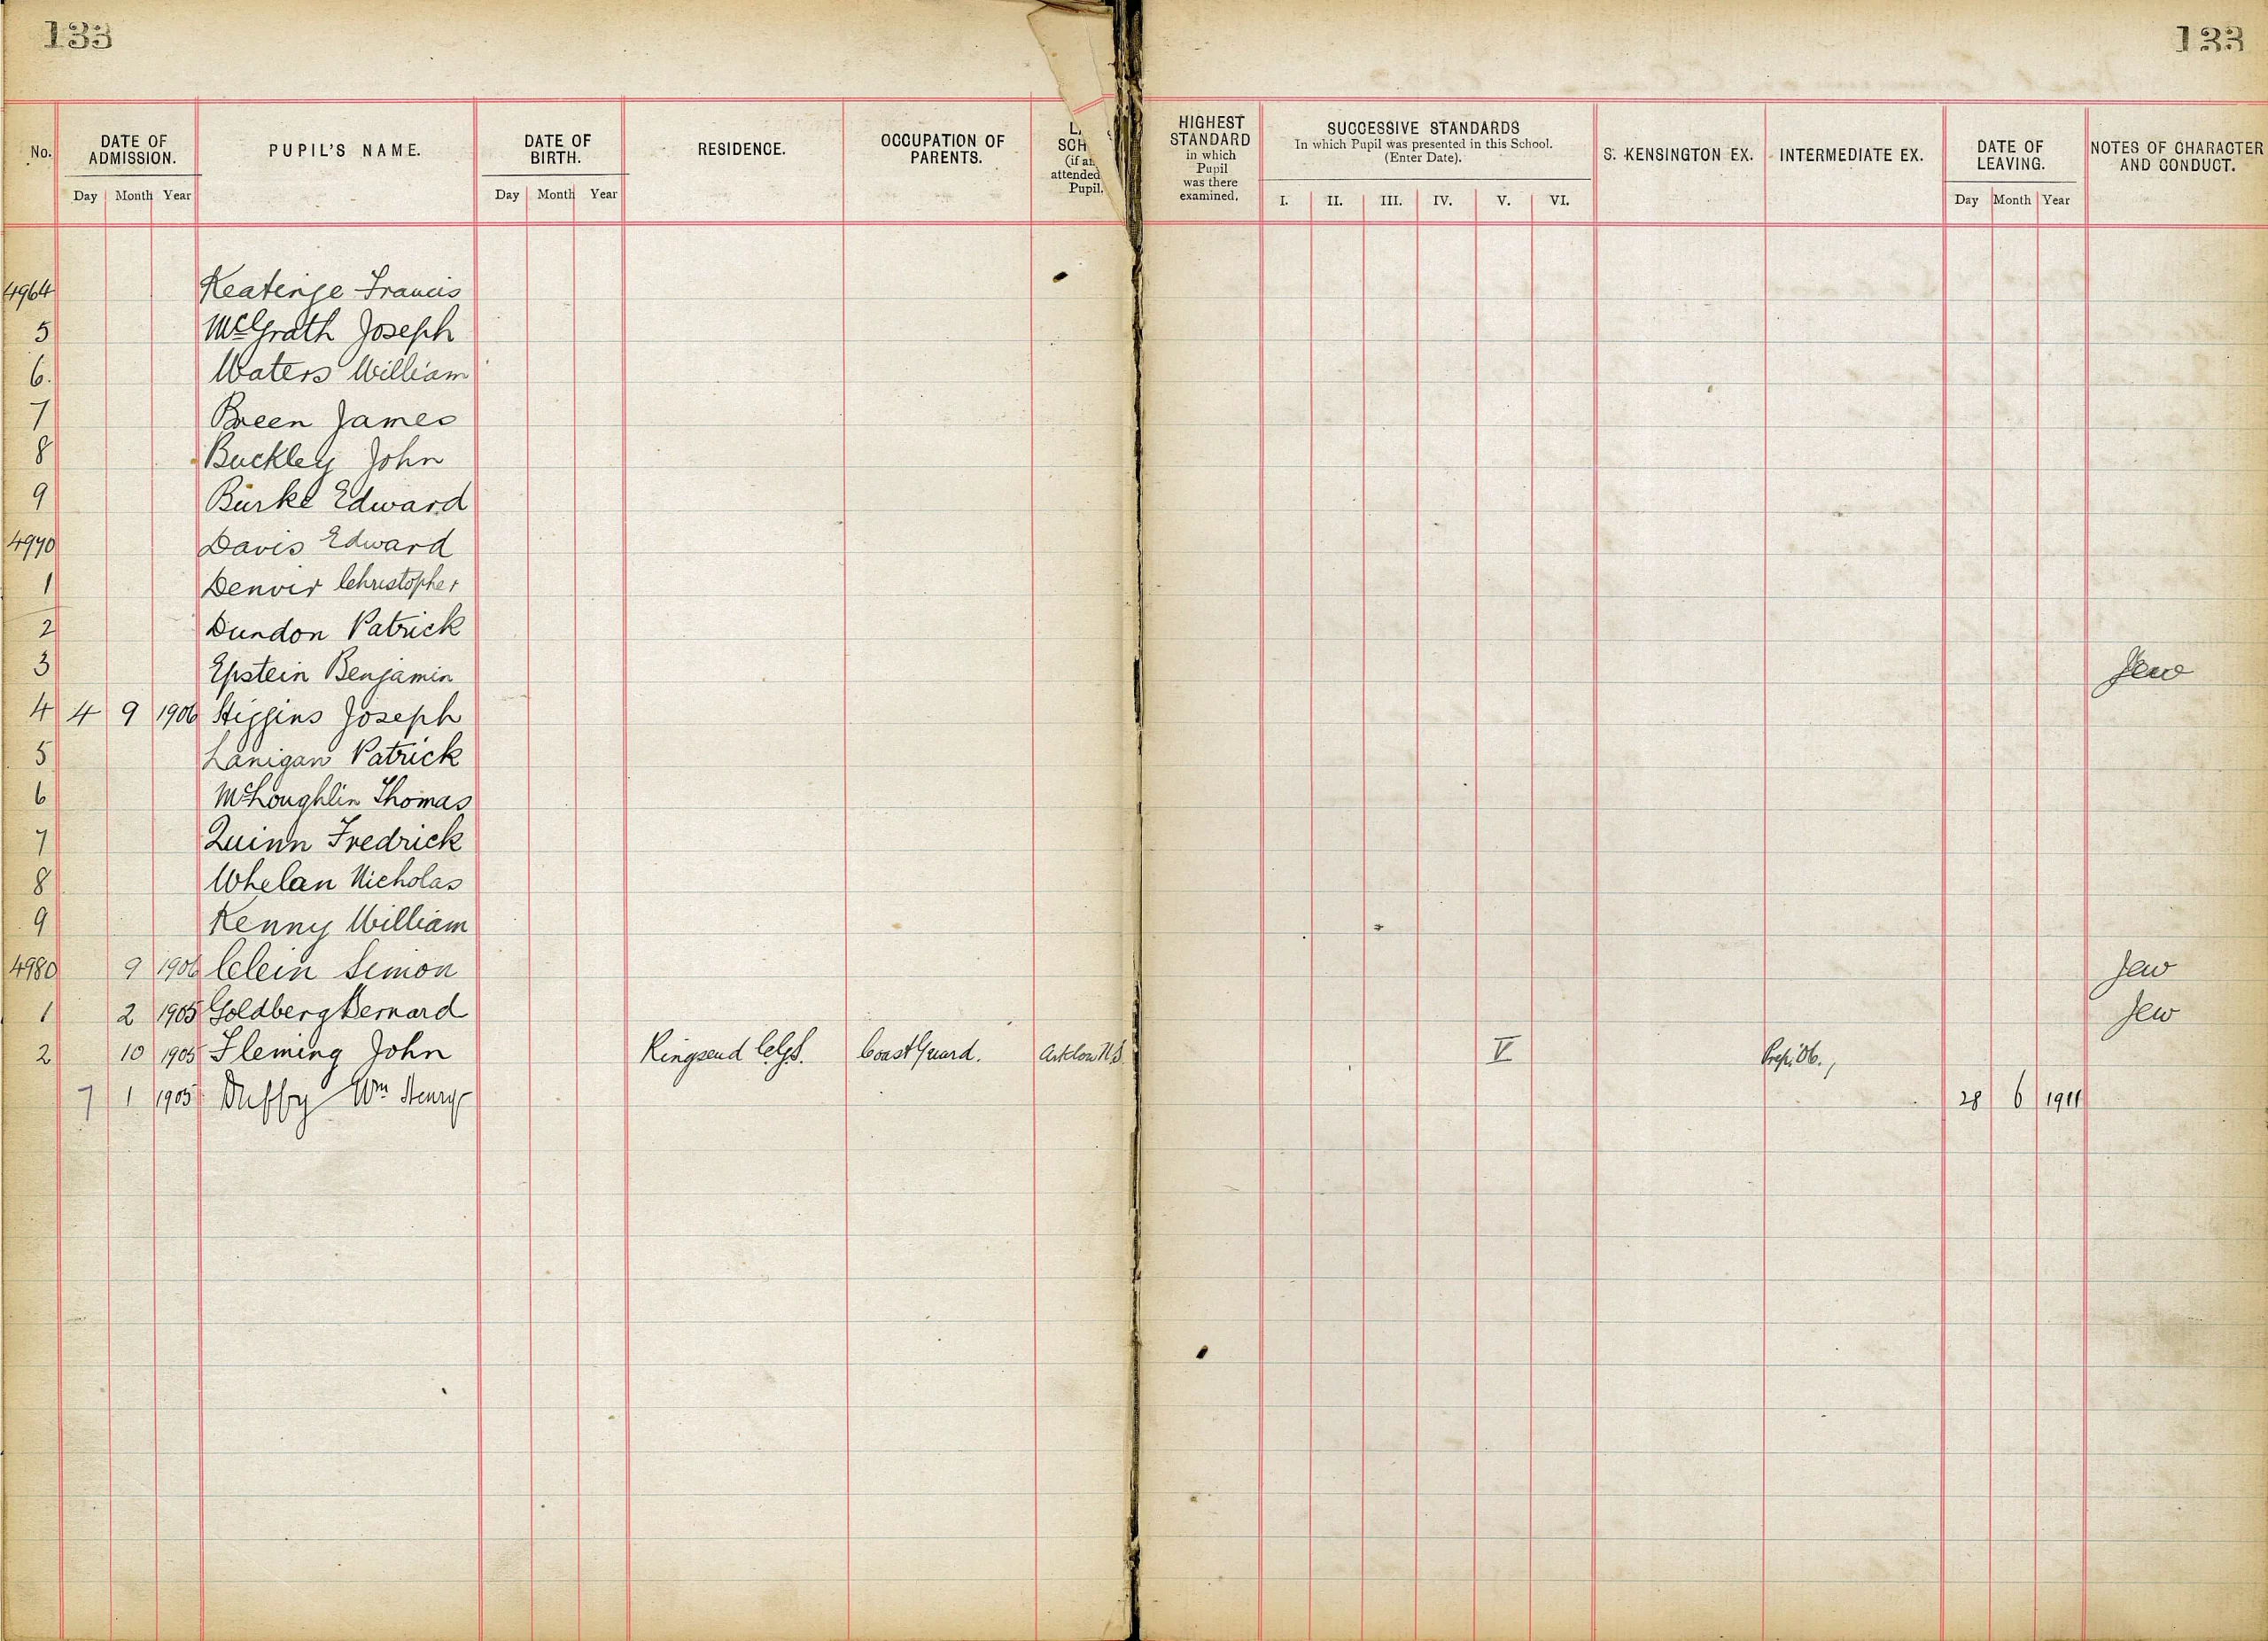 133
133
No. DATE OF ADMISSION. PUPIL'S NAME. DATE OF BIRTH. RESIDENCE. OCCUPATION OF PARENTS. SCH (if an attended Pupil. HIGHEST STANDARD in which Pupil was there examined. SUCCESSIVE STANDARDS In which Pupil was presented in this School. (Enter Date). S. KENSINGTON EX. INTERMEDIATE EX. DATE OF LEAVING. NOTES OF CHARACTER AND CONDUCT.
Day Month Year Day Month Year I. II. III. IV. V. VI. Day Month Year
4964 Keatinge Francis
5 McGrath Joseph
6. Waters William
7 Breen James
8 Buckley John
9 Burke Edward
4970 Davis Edward
1 Denvir Christopher
2 Dundon Patrick
3 Epstein Benjamin Jew
4 4 9 1906 Higgins Joseph
5 Lanigan Patrick
6 McLoughlin Thomas
7 Quinn Fredrick
8 Whelan Nicholas
9 Kenny William
4980 9 1906 Clein Simon Jew
1 2 1905 Goldberg Bernard Jew
2 10 1905 Fleming John Ringsend C.G.S. Coast Guard. Arklow N.S. V Prep.
7 1 1905 Duffy Wm Henry 28 6 1911